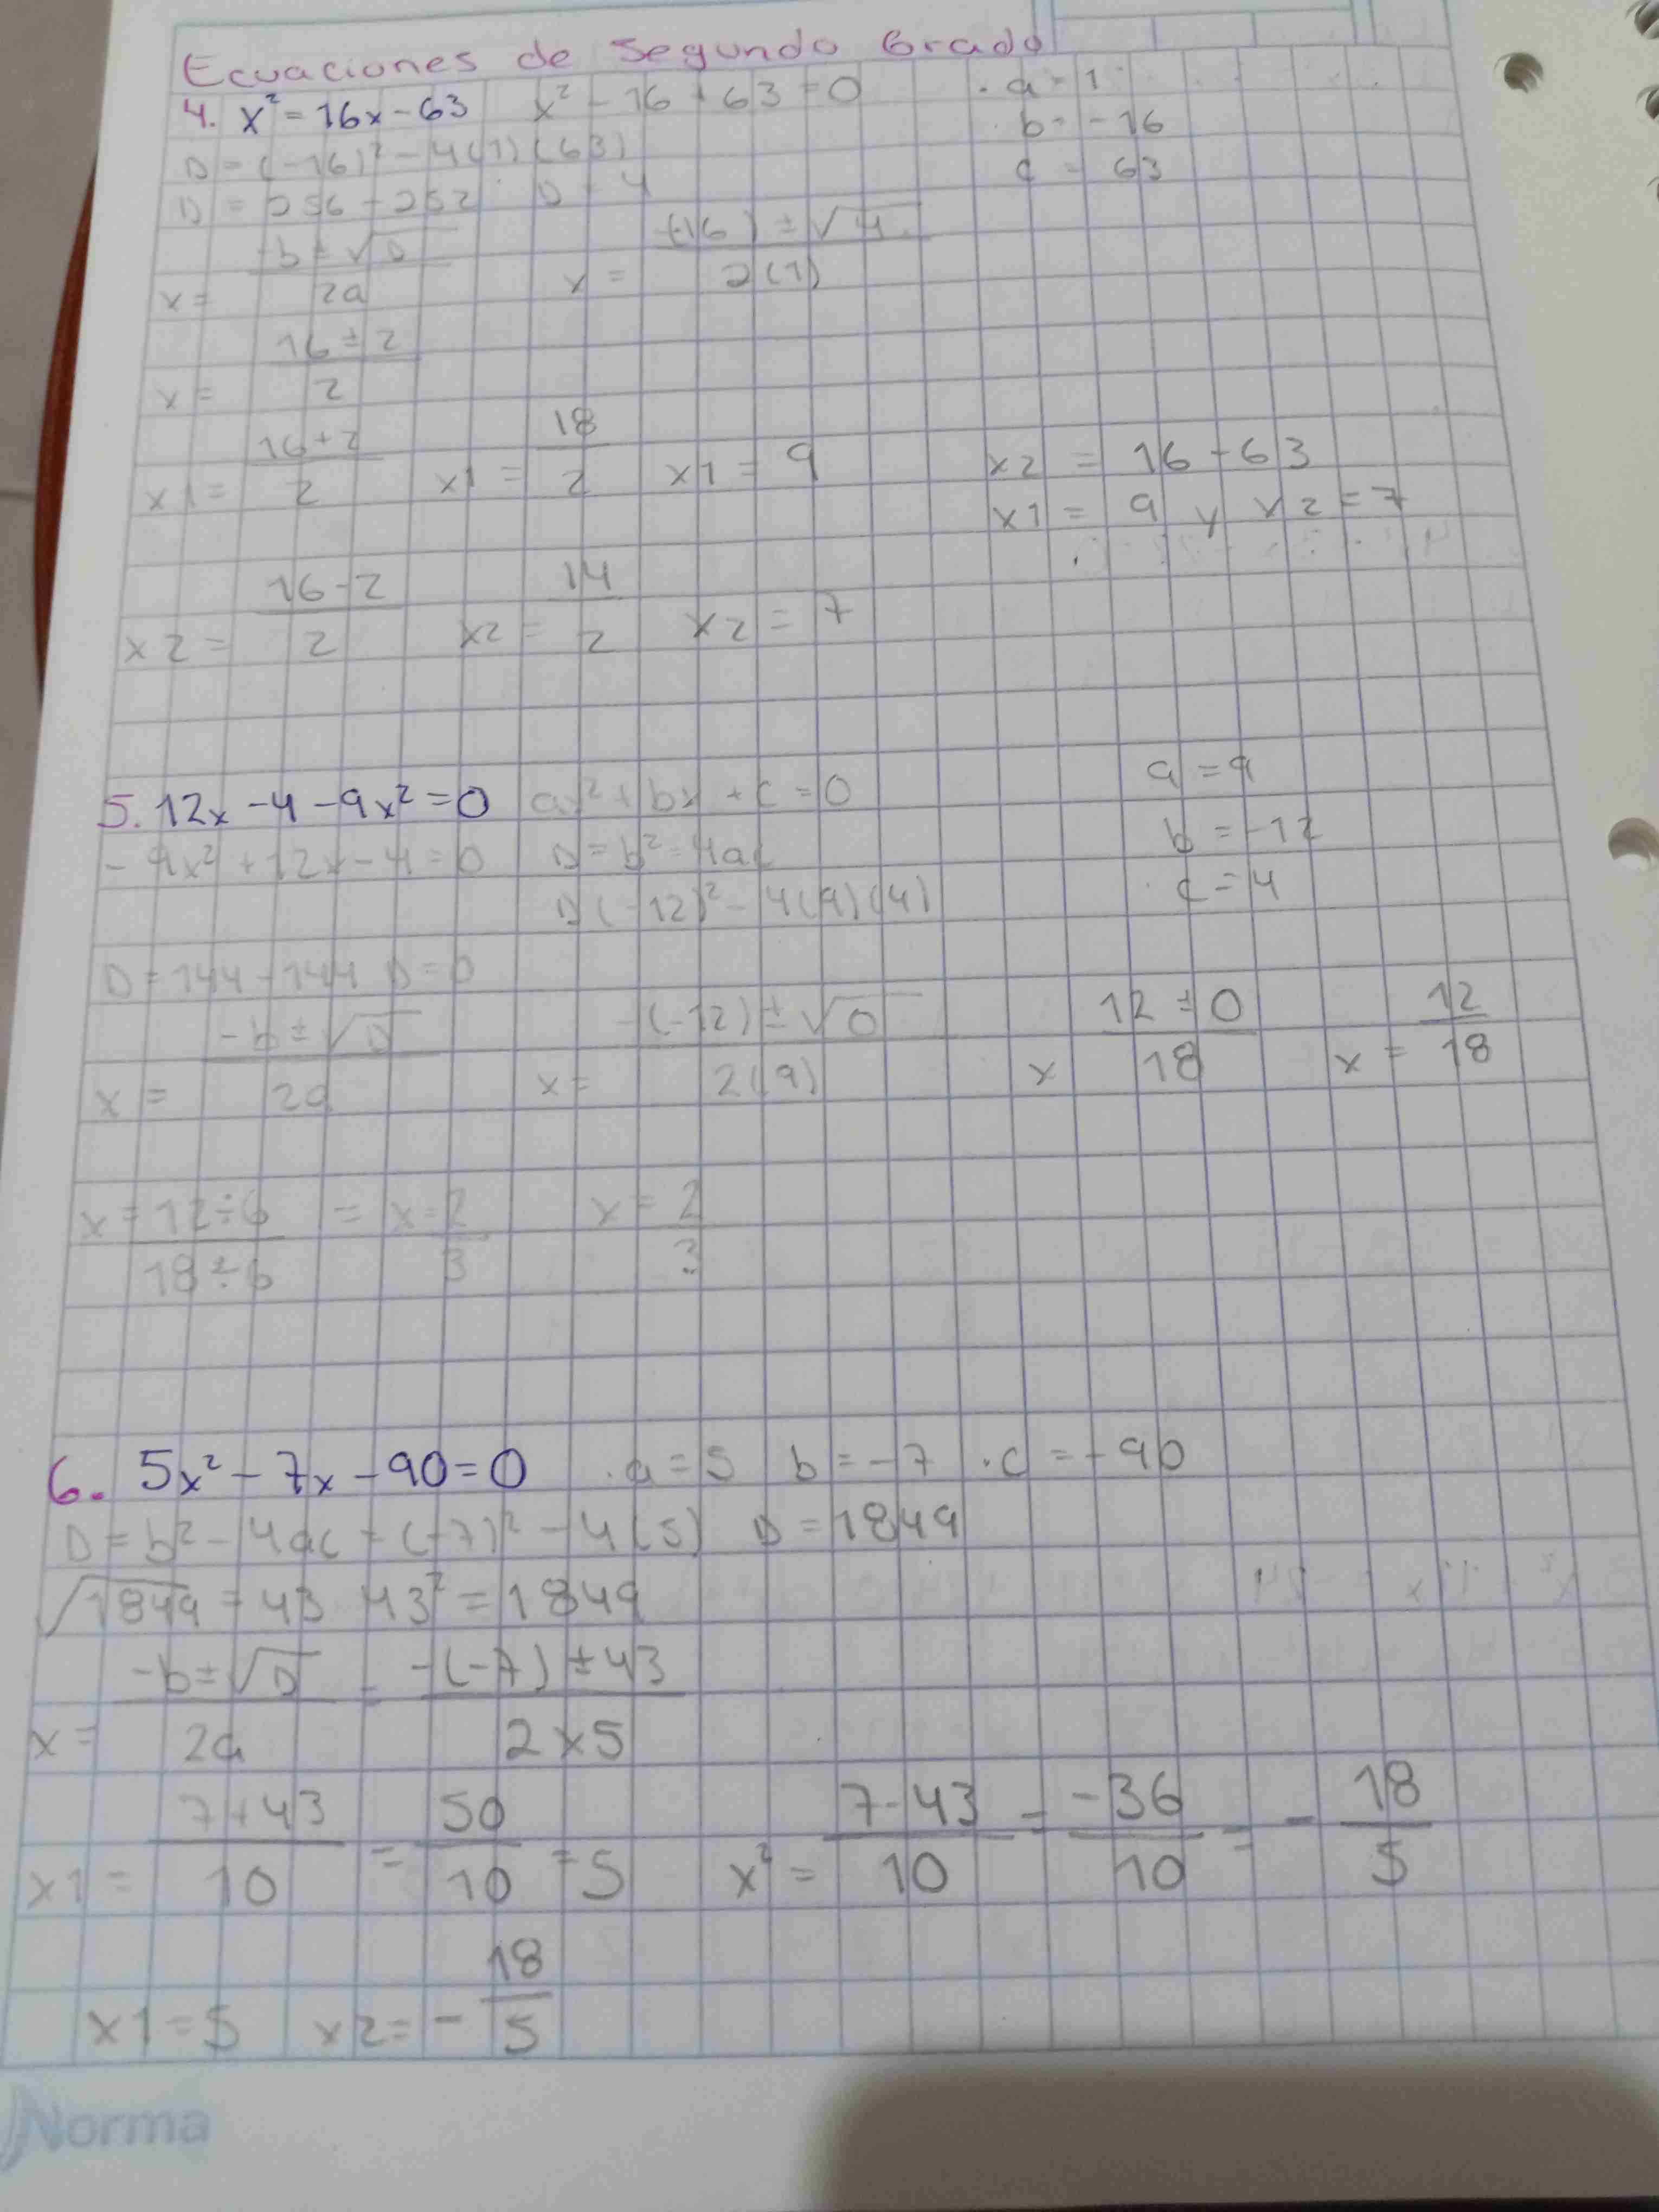 Ecuaciones de Segundo Grado
4. x² = 16x - 63   x² - 16 + 63 = 0   · a = 1
D = (-16)² - 4(1)(63)   · b = -16
D = 256 - 252   D = 4   c = 63
x = (-b ± √D)/(2a)   x = (-16) ± √4 / 2(1)
x = (16 ± 2)/2
x1 = (16+2)/2   x1 = 18/2   x1 = 9   x2 = 16-63
x1 = 9 y x2 = 7
x2 = (16-2)/2   x2 = 14/2   x2 = 7
5. 12x - 4 - 9x² = 0   ax² + bx + c = 0   a = 9
- 9x² + 12x - 4 = 0   D = b² - 4ac   b = -12
D (-12)² - 4(9)(4)   · c = 4
D = 144 - 144   D = 0
x = (-b ± √D)/(2a)   x = -(-12) ± √0 / 2(9)   x (12 ± 0)/18   x = 12/18
x = 12÷6 / 18÷6 = x = 2/3   x = 2/3
6. 5x² - 7x - 90 = 0   · a = 5   b = -7   · c = -90
D = b² - 4ac = (-7)² - 4(5)   D = 1849
√1849 = 43   43² = 1849
x = (-b ± √D)/(2a) = -(-7) ± 43 / 2x5
x1 = (7+43)/10 = 50/10 = 5   x² = (7-43)/10 = -36/10 = - 18/5
x1 = 5   x2 = - 18/5
Norma